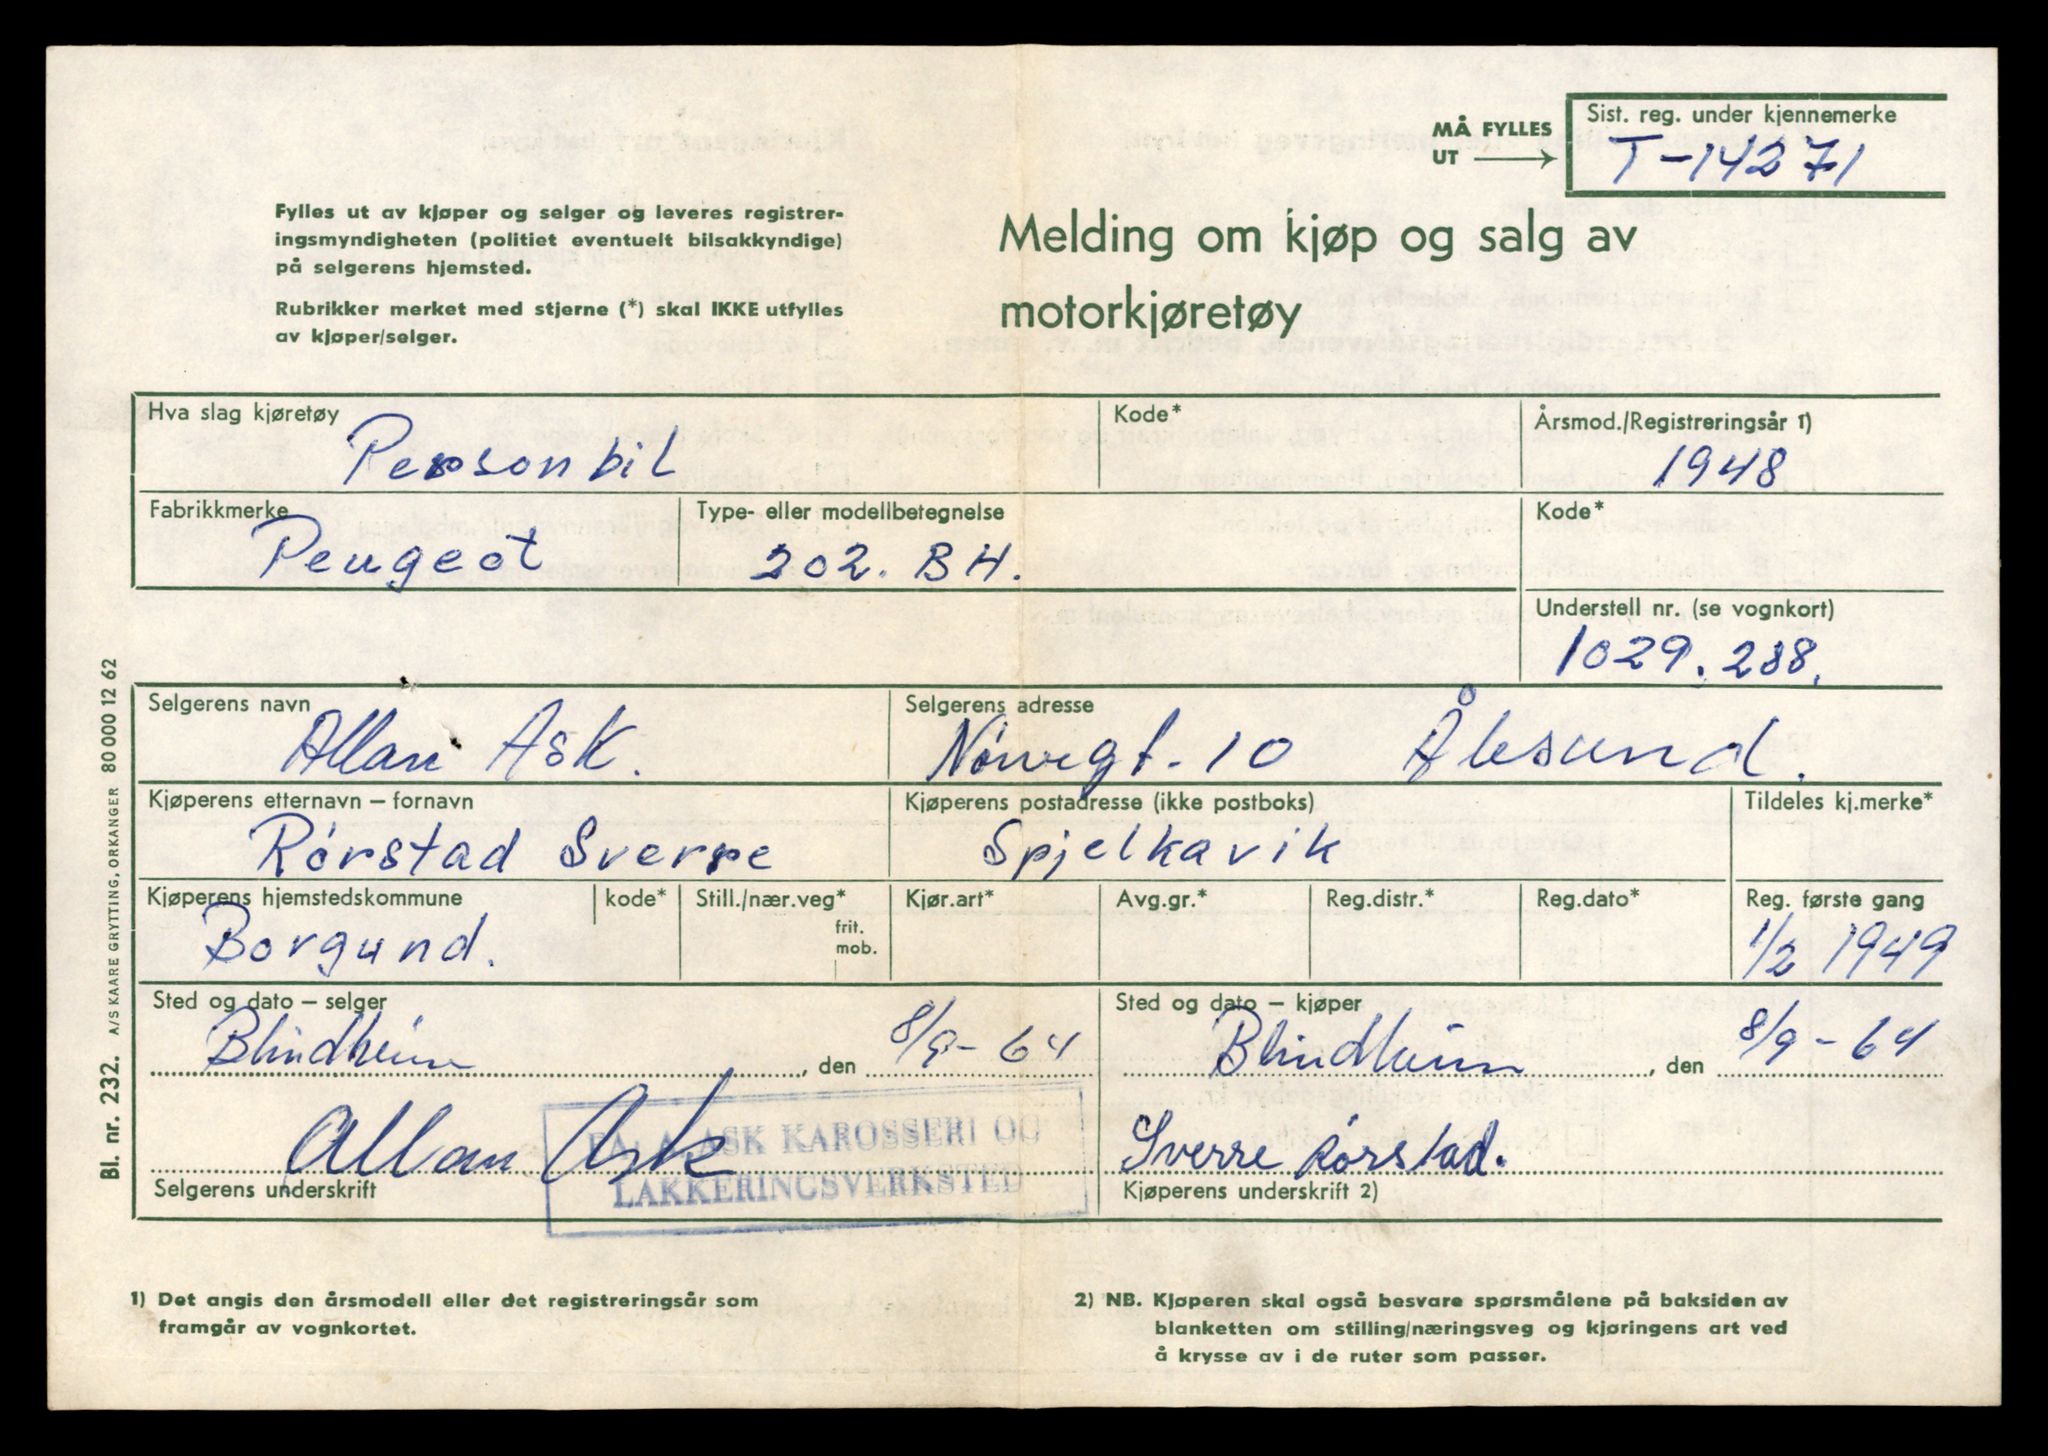 MÅ FYLLES
UT
Sist. reg. under kjennemerke
T-14271
Fylles ut av kjøper og selger og leveres registrer-
ingsmyndigheten (politiet eventuelt bilsakkyndige)
på selgerens hjemsted.
Rubrikker merket med stjerne (*) skal IKKE utfylles
av kjøper/selger.
Melding om kjøp og salg av
motorkjøretøy
Hva slag kjøretøy
Personbil
Kode*
Årsmod./Registreringsår 1)
1948
Fabrikkmerke
Peugeot
Type- eller modellbetegnelse
202. BH.
Kode*
Understell nr. (se vognkort)
1029.288.
Selgerens navn
Allan Ask.
Selgerens adresse
Nørvegt. 10 Ålesund.
Kjøperens etternavn – fornavn
Rørstad Sverre
Kjøperens postadresse (ikke postboks)
Spjelkavik
Tildeles kj.merke*
Kjøperens hjemstedskommune
Borgund.
kode*
Still./nær.veg*
frit.
mob.
Kjør.art*
Avg.gr.*
Reg.distr.*
Reg.dato*
Reg. første gang
1/2 1949
Sted og dato – selger
Blindheim, den 8/9-64
Sted og dato – kjøper
Blindheim, den 8/9-64
Allan Ask
Selgerens underskrift
A. ASK KAROSSERI OG
LAKKERINGSVERKSTED
Sverre Rørstad.
Kjøperens underskrift 2)
1) Det angis den årsmodell eller det registreringsår som
framgår av vognkortet.
2) NB. Kjøperen skal også besvare spørsmålene på baksiden av
blanketten om stilling/næringsveg og kjøringens art ved
å krysse av i de ruter som passer.
Bl. nr. 232. A/S KAARE GRYTTING, ORKANGER 80 000 12 62